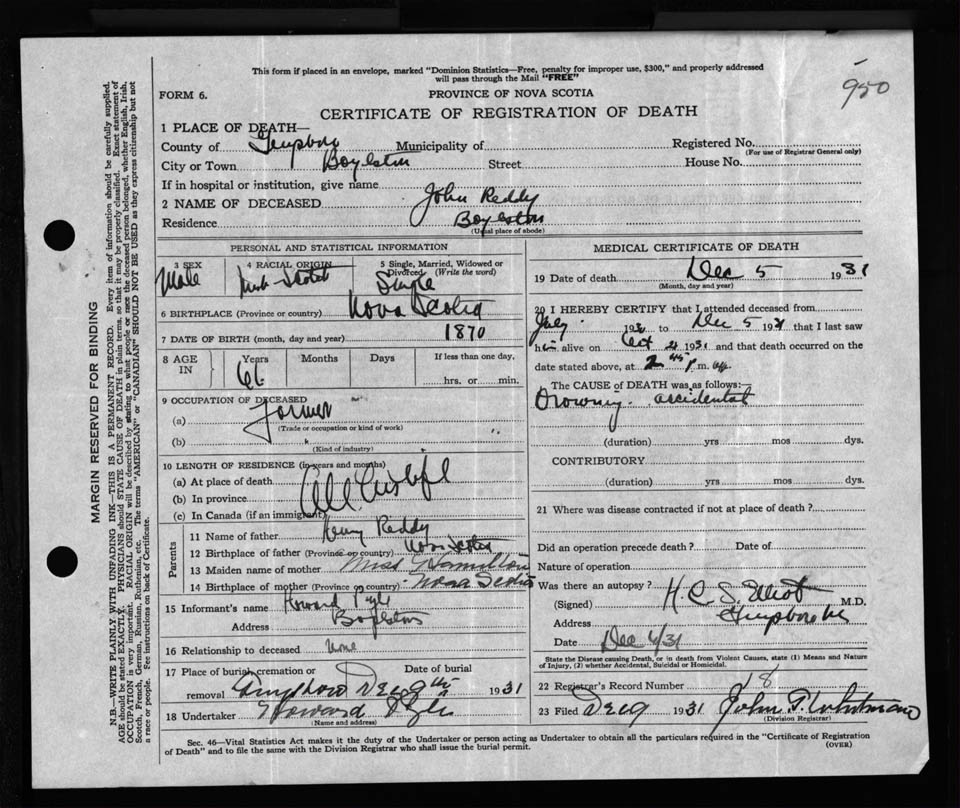 950
This form if placed in an envelope, marked "Dominion Statistics—Free, penalty for improper use, $300," and properly addressed
will pass through the Mail "FREE"
FORM 6.
PROVINCE OF NOVA SCOTIA
CERTIFICATE OF REGISTRATION OF DEATH
1 PLACE OF DEATH—
County of Guysboro Municipality of Registered No.
(For use of Registrar General only)
City or Town Boylston Street House No.
If in hospital or institution, give name
2 NAME OF DECEASED John Reddy
Residence Boylston
(Usual place of abode)
PERSONAL AND STATISTICAL INFORMATION
3 SEX 4 RACIAL ORIGIN 5 Single, Married, Widowed or Divorced (Write the word)
Male Single
6 BIRTHPLACE (Province or country) Nova Scotia
7 DATE OF BIRTH (month, day and year) 1870
8 AGE IN Years Months Days If less than one day,
61 hrs. or min.
9 OCCUPATION OF DECEASED
(a) Farmer
(Trade or occupation or kind of work)
(b)
(Kind of industry)
10 LENGTH OF RESIDENCE (in years and months)
(a) At place of death All his life
(b) In province
(c) In Canada (if an immigrant)
Parents
11 Name of father Henry Reddy
12 Birthplace of father (Province or country) Nova Scotia
13 Maiden name of mother Miss Hamilton
14 Birthplace of mother (Province or country) Nova Scotia
15 Informant's name Howard Pyle
Address Boylston
16 Relationship to deceased None
17 Place of burial, cremation or removal Date of burial
Dec 9th 1931
18 Undertaker Howard Pyle
(Name and address)
MEDICAL CERTIFICATE OF DEATH
19 Date of death Dec 5 1931
(Month, day and year)
20 I HEREBY CERTIFY that I attended deceased from
July 19 to Dec 5 1931 that I last saw
him alive on Oct 1931 and that death occurred on the
date stated above, at 2 45 P m.
The CAUSE OF DEATH was as follows:—
Drowning accidental
(duration) yrs mos dys.
CONTRIBUTORY
(duration) yrs mos dys.
21 Where was disease contracted if not at place of death?
Did an operation precede death? Date of
Nature of operation
Was there an autopsy?
(Signed) H. C. S. Elliot M.D.
Address Guysboro
Date Dec /31
State the Disease causing Death, or in death from Violent Causes, state (1) Means and Nature
of Injury, (2) whether Accidental, Suicidal or Homicidal.
22 Registrar's Record Number 18
23 Filed Dec 9 1931 John T. Whitman
(Division Registrar)
Sec. 46—Vital Statistics Act makes it the duty of the Undertaker or person acting as Undertaker to obtain all the particulars required in the "Certificate of Registration
of Death" and to file the same with the Division Registrar who shall issue the burial permit.
(OVER)
MARGIN RESERVED FOR BINDING
N.B.—WRITE PLAINLY WITH UNFADING INK—THIS IS A PERMANENT RECORD. Every item of information should be carefully supplied.
AGE should be stated EXACTLY. PHYSICIANS should STATE CAUSE OF DEATH in plain terms, so that it may be properly classified. Exact statement of
OCCUPATION is very important. RACIAL ORIGIN will be described by stating to what people or race the deceased person belonged, whether English, Irish,
Scotch, French, German, Russian, Ruthenian, etc. The terms "AMERICAN" or "CANADIAN" SHOULD NOT BE USED as they express citizenship but not
a race or people. See instructions on back of Certificate.